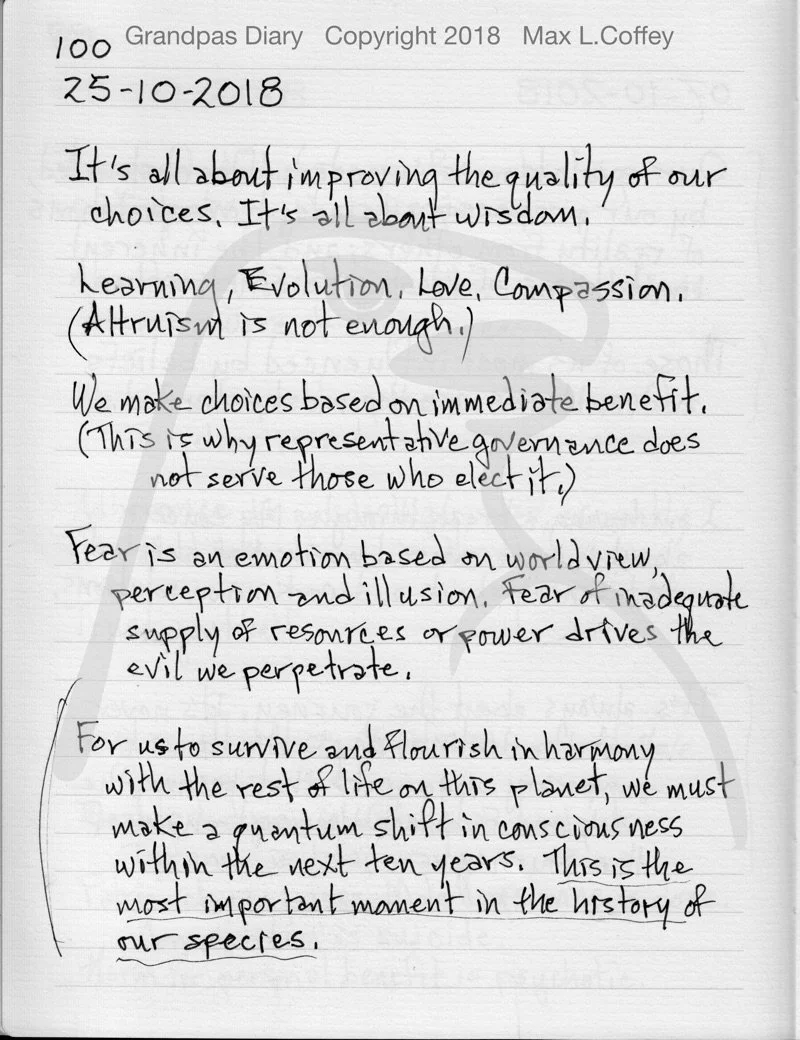 Grandpas Diary Copyright 2018 Max L.Coffey
100
25-10-2018
It's all about improving the quality of our
choices. It's all about wisdom.
Learning, Evolution, Love, Compassion.
(Altruism is not enough.)
We make choices based on immediate benefit.
(This is why representative governance does
not serve those who elect it.)
Fear is an emotion based on world view,
perception and illusion. Fear of inadequate
supply of resources or power drives the
evil we perpetrate.
For us to survive and flourish in harmony
with the rest of life on this planet, we must
make a quantum shift in consciousness
within the next ten years. This is the
most important moment in the history of
our species.